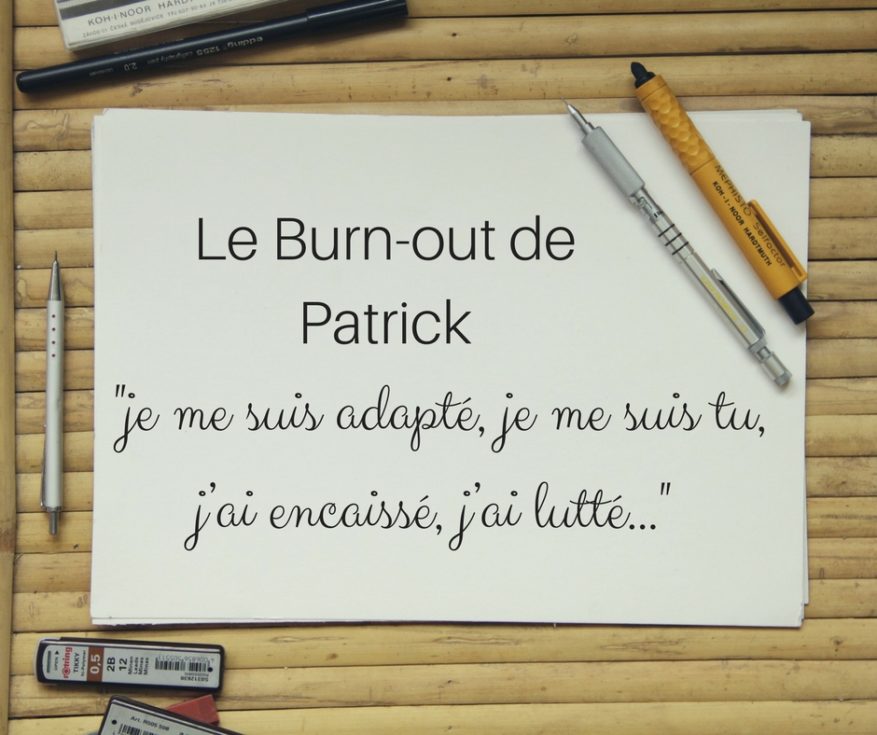 KOH-I-NOOR HARDT
edding 1255 calligraphy pen 2.0
MEPHISTO Selfactor
KOH-I-NOOR HARDTMUTH
Le Burn-out de
Patrick
"je me suis adapté, je me suis tu,
j'ai encaissé, j'ai lutté..."
rotring
TIKKY
0,5
2B
12
Minen
Leads
Mines
Minas
Art. R505 508